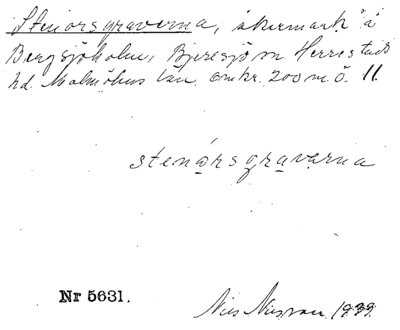 Stenorsgraverna, åkermark å
Bergsjöholm, Bjeresjö sn Herrestads
hd. Malmöhus län. omkr. 200 m. ö. 11
stenårsgravarna
Nr 5631.
Nils 1939.